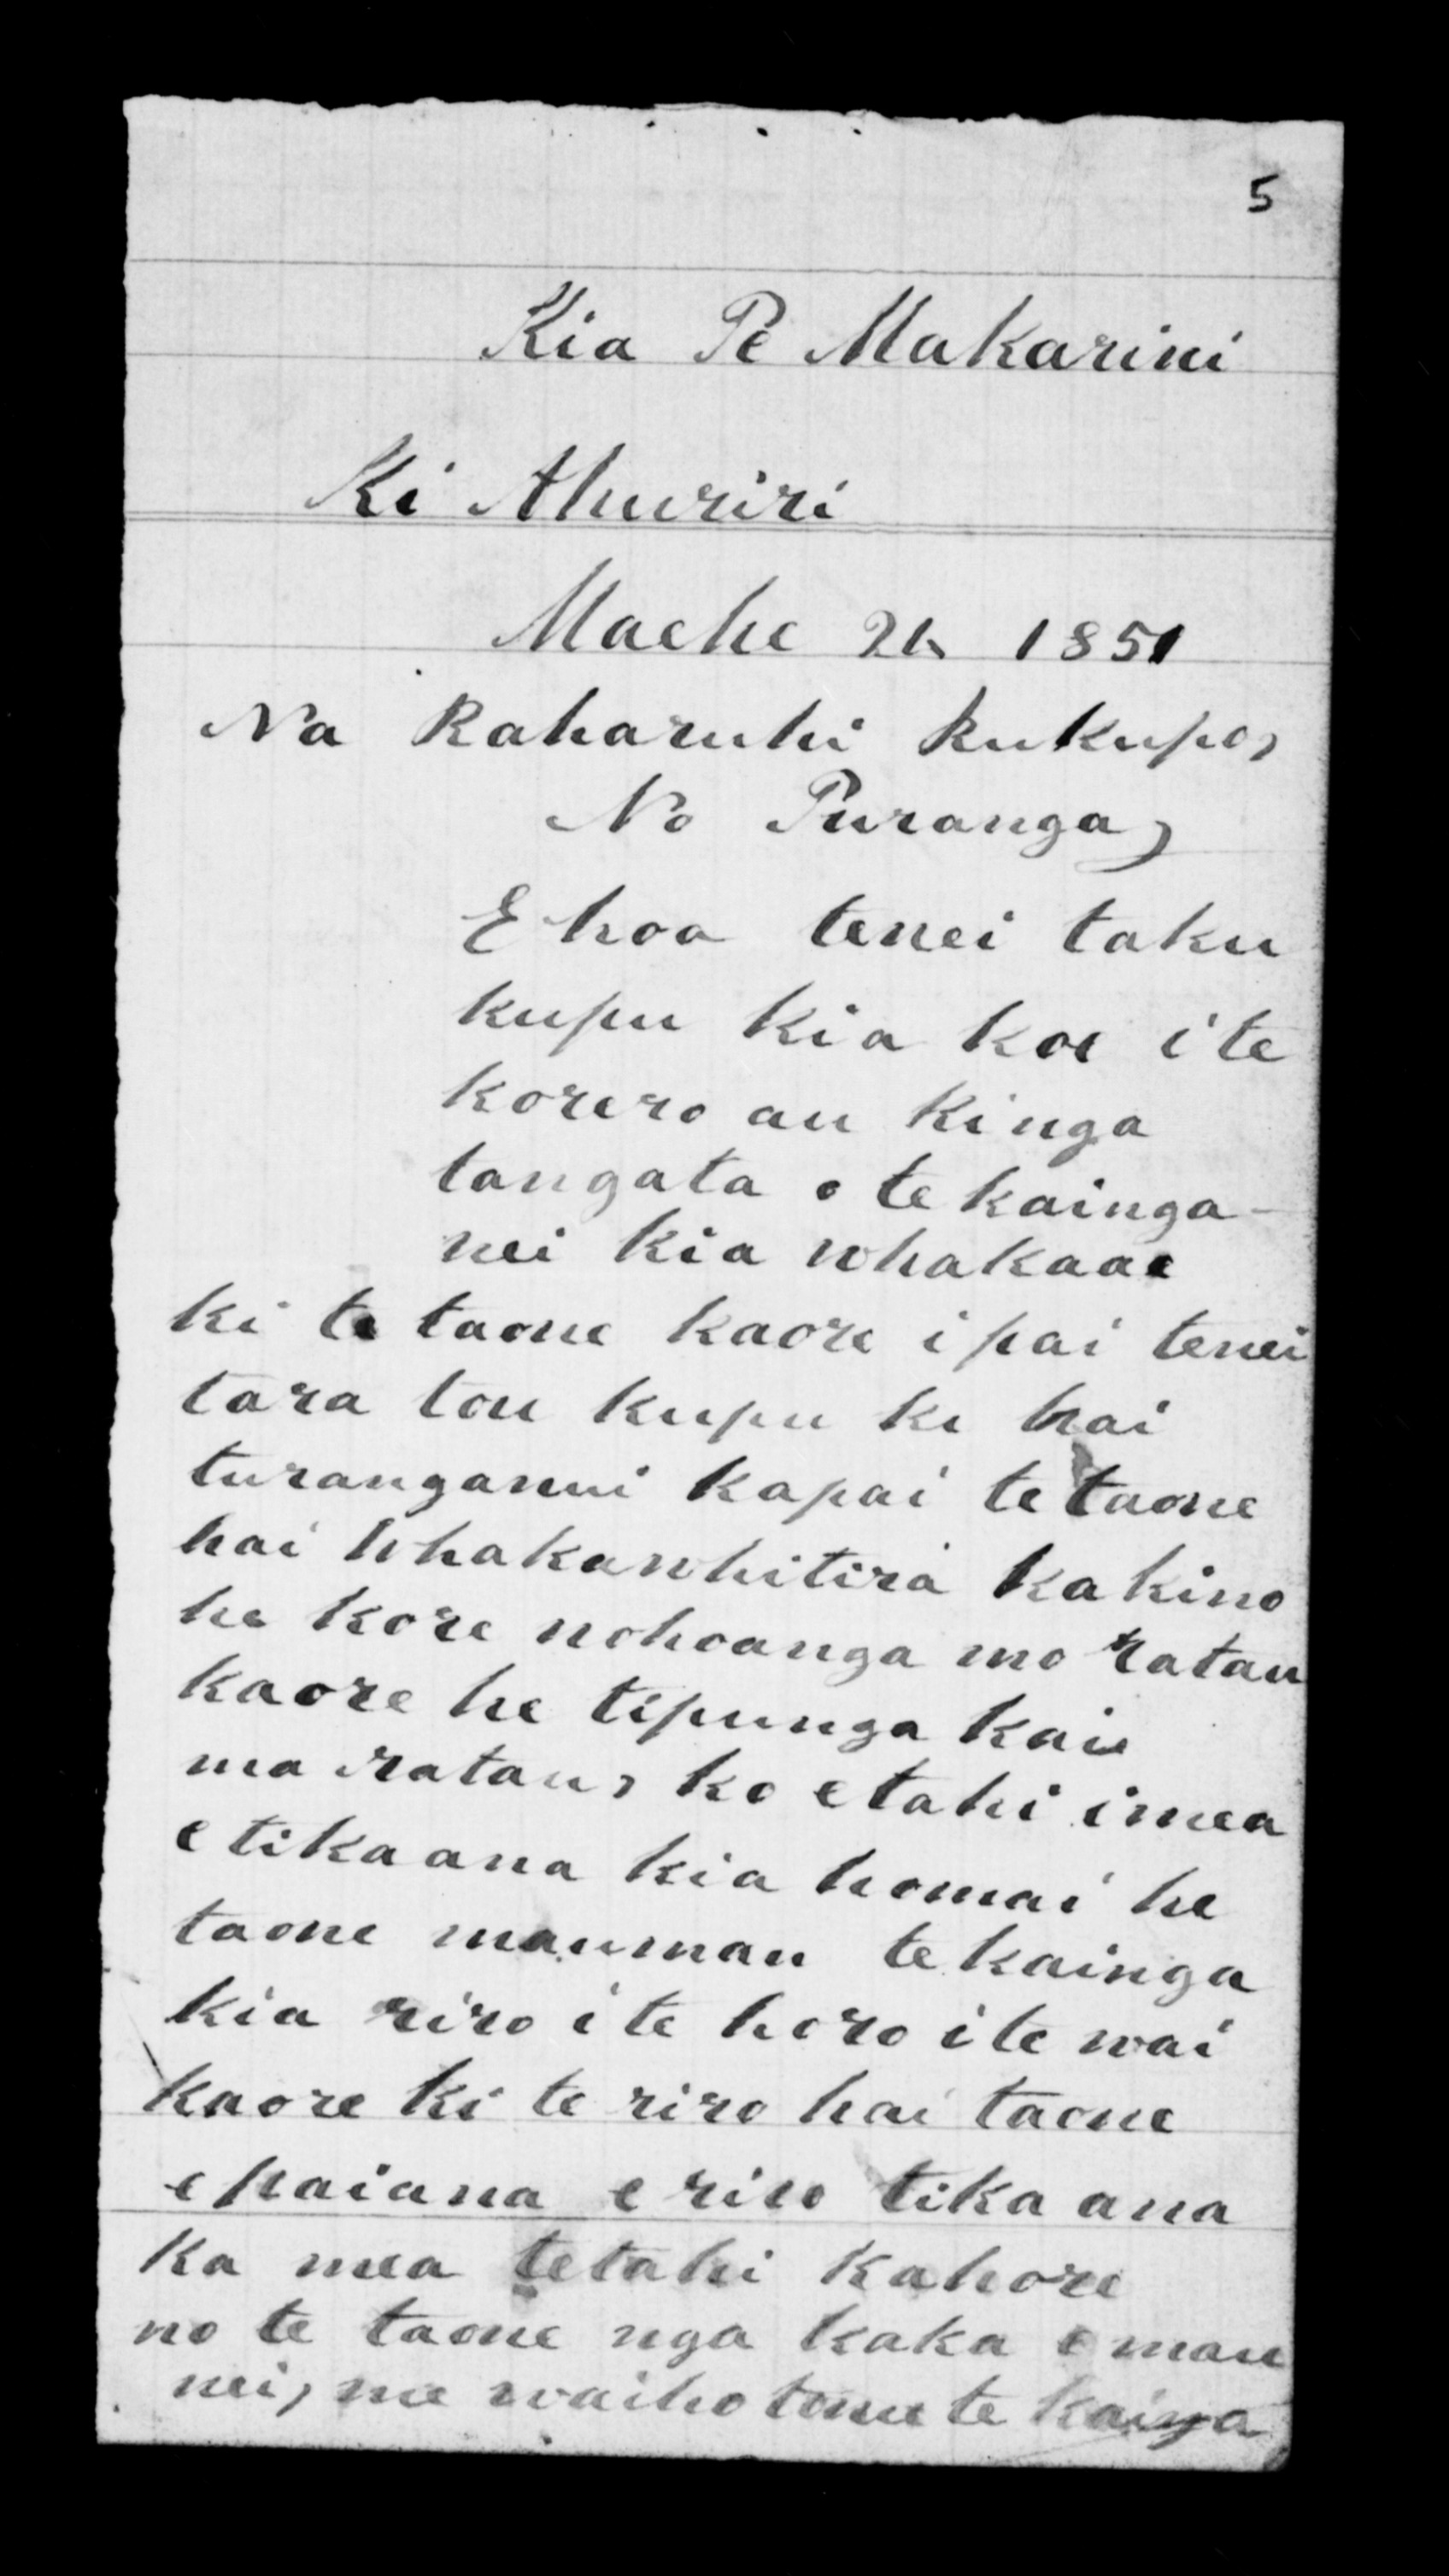 5
Kia Te Makarini
Ki Ahuriri
Maehe 21, 1851
Na Raharuhi Rukupo,
No Turanga,
E hoa tenei taku
kupu kia koe i te
korero au ki nga
tangata o te kainga
nei kia whakaae
ki te taone kaore i pai tenei
tara tou kupu ke hai
turanganui kapai te taone
hai whakawhitira ka kino
he kore nohoanga mo ratau
kaore he tipunga kai
ma ratau, ko etahi i mea
e tika ana kia homai he
taone maumau te kainga
kia riro i te horo i te wai
kaore ki te riro hai taone
e pai ana e riro tika ana
ka mea tetahi kahore
no te taone nga kaka e mau
nei, me waiho tonu te kainga